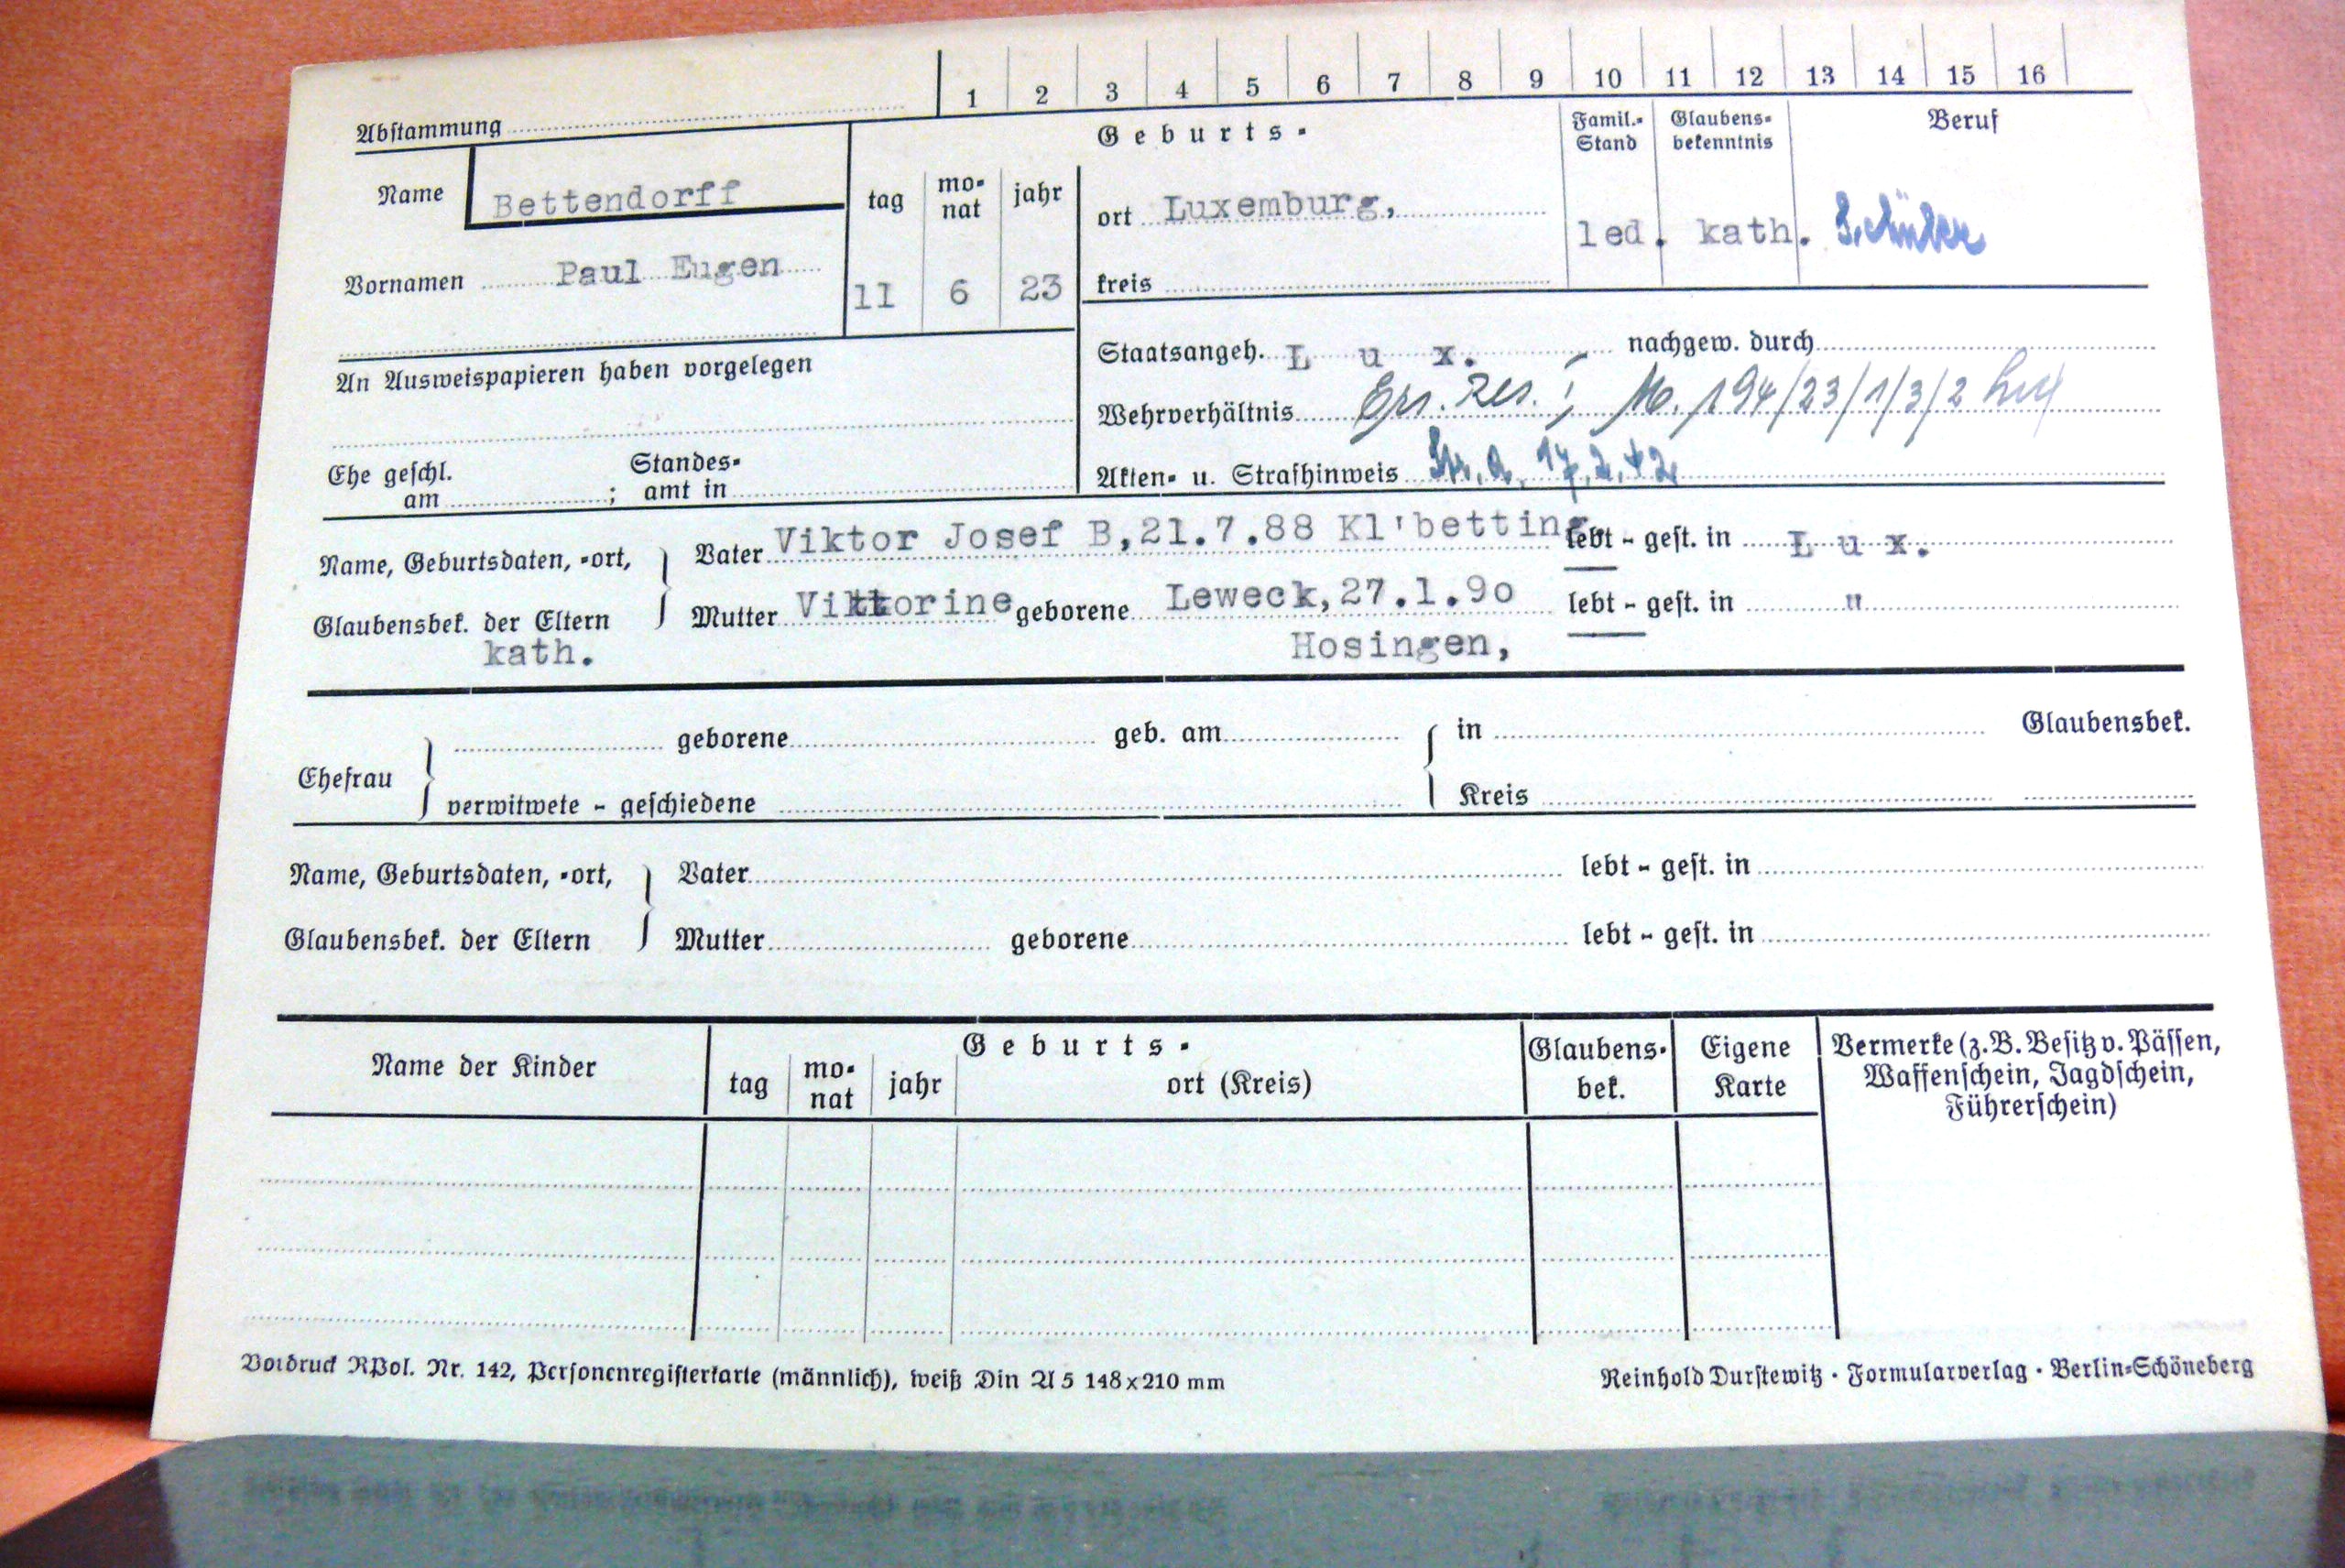 1 2 3 4 5 6 7 8 9 10 11 12 13 14 15 16
Abstammung
Name Bettendorff
Vornamen Paul Eugen
Geburts-
tag monat jahr
11 6 23
ort Luxemburg,
kreis
Famil.-Stand Glaubens-bekenntnis Beruf
led. kath. Schüler
An Ausweispapieren haben vorgelegen
Staatsangeh. L u x. nachgew. durch
Wehrverhältnis Ers. Res. ; M. 194/23/1/3/2
Akten- u. Strafhinweis Str. A. 17.2.42
Ehe geschl. am ; Standes-amt in
Name, Geburtsdaten, -ort, Vater Viktor Josef B,21.7.88 Kl'betting lebt - gest. in L u x.
Glaubensbek. der Eltern Mutter Viktorine geborene Leweck,27.1.90 lebt - gest. in "
kath. Hosingen,
geborene geb. am in Glaubensbek.
Ehefrau
verwitwete - geschiedene Kreis
Name, Geburtsdaten, -ort, Vater lebt - gest. in
Glaubensbek. der Eltern Mutter geborene lebt - gest. in
Name der Kinder
Geburts-
tag monat jahr ort (Kreis)
Glaubens-bek.
Eigene Karte
Vermerke (z.B. Besitz v. Pässen,
Waffenschein, Jagdschein,
Führerschein)
Vordruck RPol. Nr. 142, Personenregisterkarte (männlich), weiß Din A 5 148x210 mm
Reinhold Durstewitz · Formularverlag · Berlin-Schöneberg